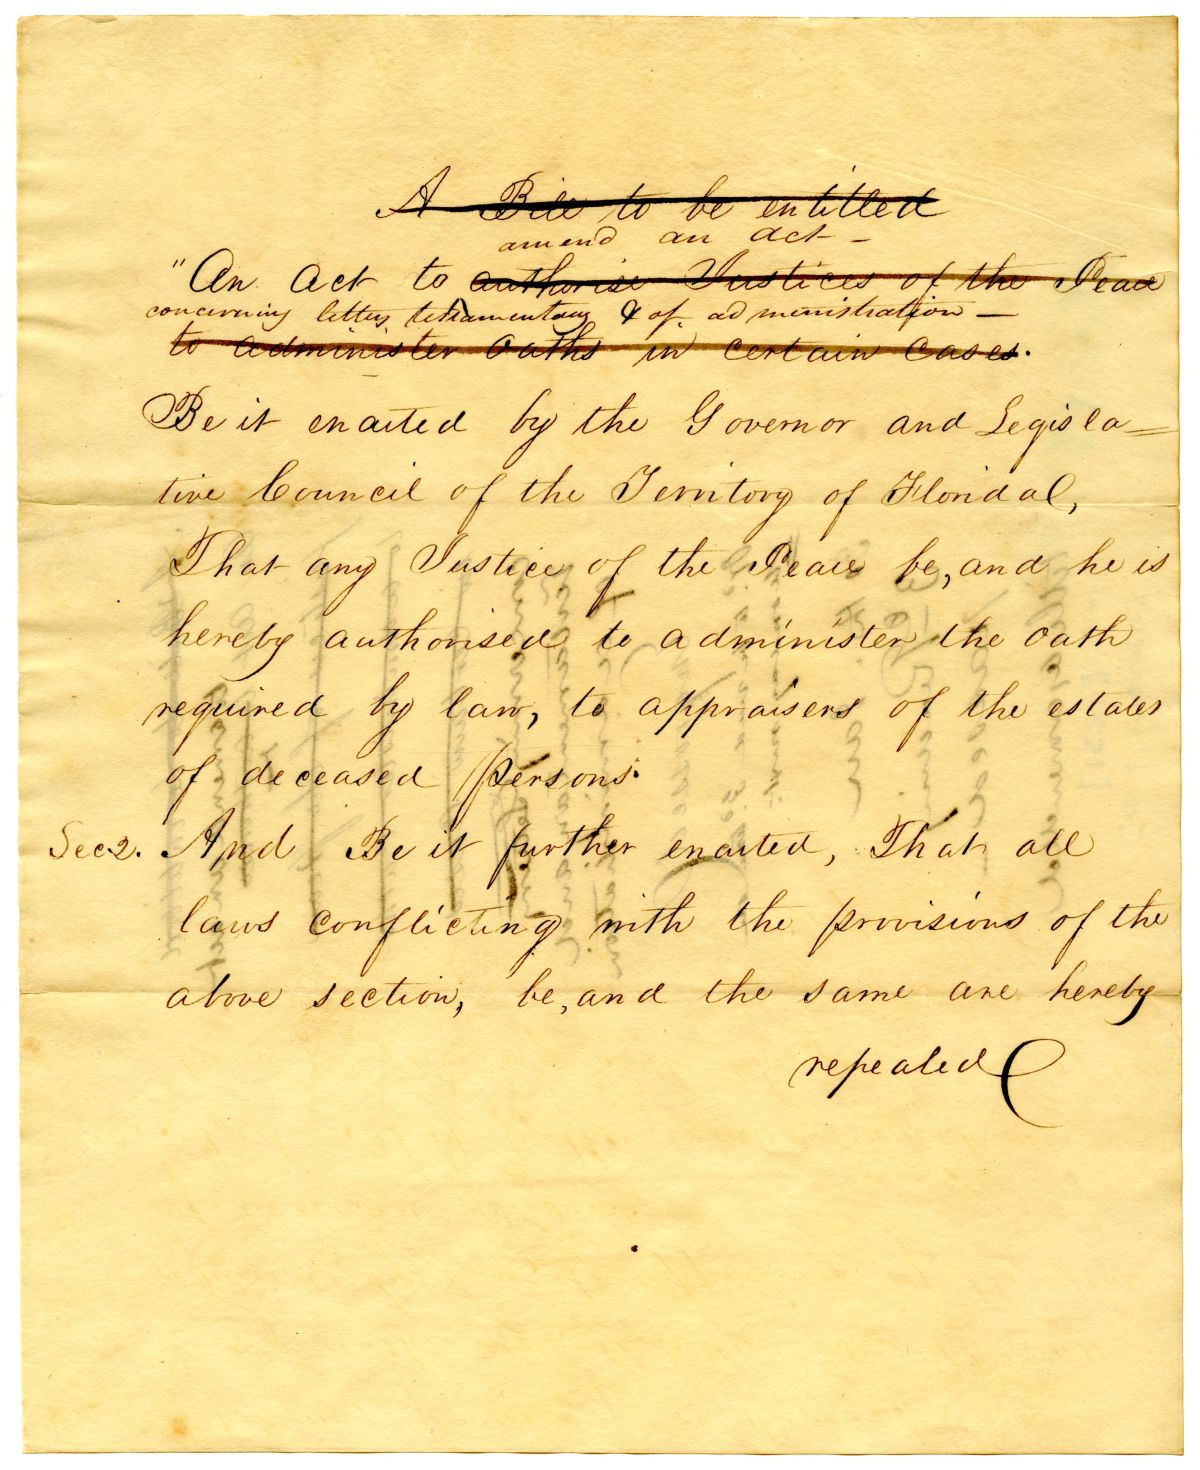 A Bill to be entitled
amend an act –
"An Act to authorise Justices of the Peace
concerning letters testamentary & of administration –
to administer Oaths in certain cases.
Be it enacted by the Governor and Legisla=
tive Council of the Territory of Florida,
That any Justice of the Peace be, and he is
hereby authorised to administer the Oath
required by law, to appraisers of the estates
of deceased persons.
Sec. 2. And Be it further enacted, That all
laws conflicting with the provisions of the
above section, be, and the same are hereby
repealed